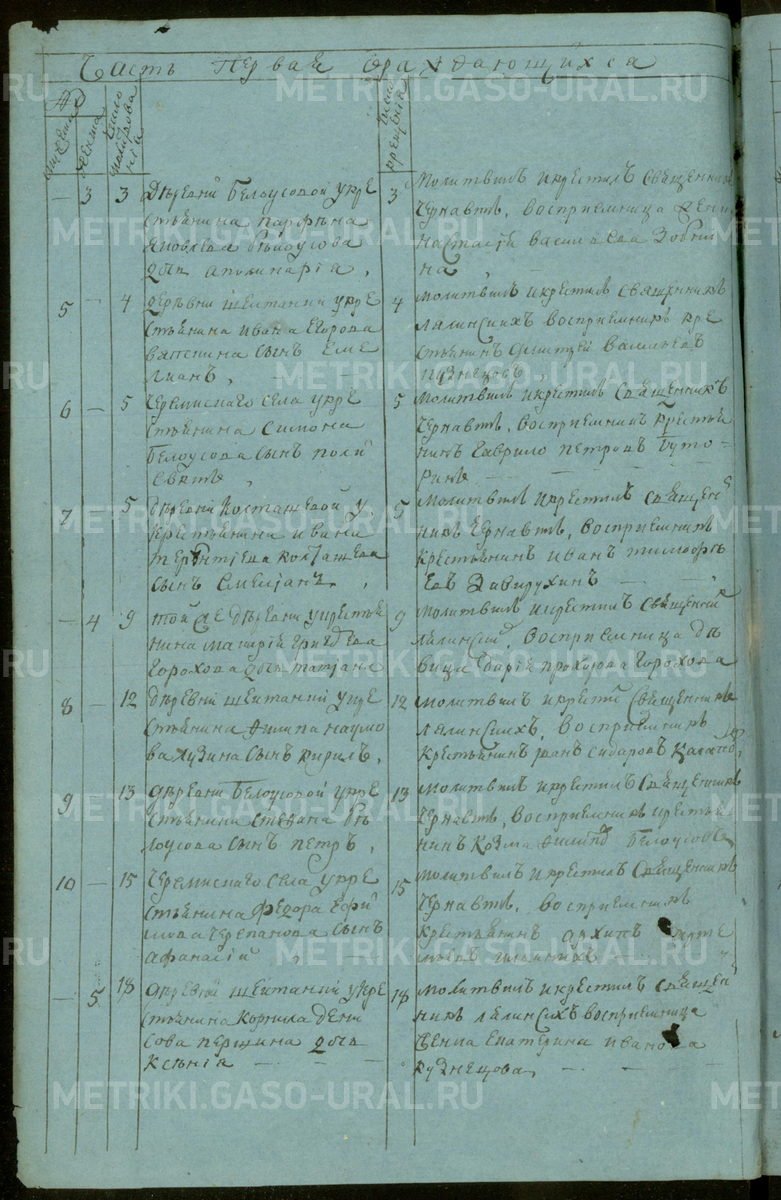 Часть Первая ораждающихся
№
3 3 Деревни Белоусовой укре
стьянина Парфена
Яковлева Белоусова
дочь Аполинария,
3 Молитвилъ и крестилъ священникъ
Чернавтъ, восприемница
Настасiя Васильева Зобни
на
5 4 деревни Шейтанки укре
стьянина Ивана Егорова
сынъ Еме
лианъ,
4 Молитвилъ и крестилъ священникъ
Лялинскихъ восприемникъ кре
стьянинъ Васильевъ
Кузнецовъ
6 5 Черемискаго села укре
стьянина Симона
Белоусова сынъ Поли
евктъ,
5 Молитвилъ и крестилъ священникъ
Чернавтъ, восприемникъ крестья
нинъ Гаврило Петровъ Буто-
ринъ
7 5 деревни Косташевой у
крестьянина Ивана
Терентiева Колташева
сынъ Емелiанъ,
5 Молитвилъ и крестилъ священ
никъ Чернавтъ, восприемникъ
крестьянинъ Иванъ Тимофе
евъ Завирухинъ
4 9 той же деревни укрестья
нина
Горохова дочь Татiана
9 Молитвилъ и крестилъ священникъ
Лялинскихъ, восприемница де
вица Дарiя Прохорова Горохова
8 12 деревни Шейтанки укре
стьянина Филипа Наумо
ва Лузина сынъ Кирилъ,
12 Молитвилъ и крестилъ священникъ
Лялинскихъ, восприемникъ
крестьянинъ
9 13 деревни Белоусовой укре
стьянина Стефана Бе
лоусова сынъ Петръ,
13 Молитвилъ и крестилъ священникъ
Чернавтъ, восприемникъ крестья
нинъ Козма Филипо Белоусовъ
10 15 Черемискаго села укре
стьянина Федора Ефи
мова Черепанова сынъ
Афанасiй
15 Молитвилъ и крестилъ священникъ
Чернавтъ, восприемникъ
крестьянинъ Архипъ
5 18 деревни Шейтанки укре
стьянина Корнила Дени
сова Першина дочь
Ксения
18 Молитвилъ и крестилъ священ
никъ Лялинскихъ восприемница
Екатерина Иванова
Кузнецова
METRIKI.GASO-URAL.RU